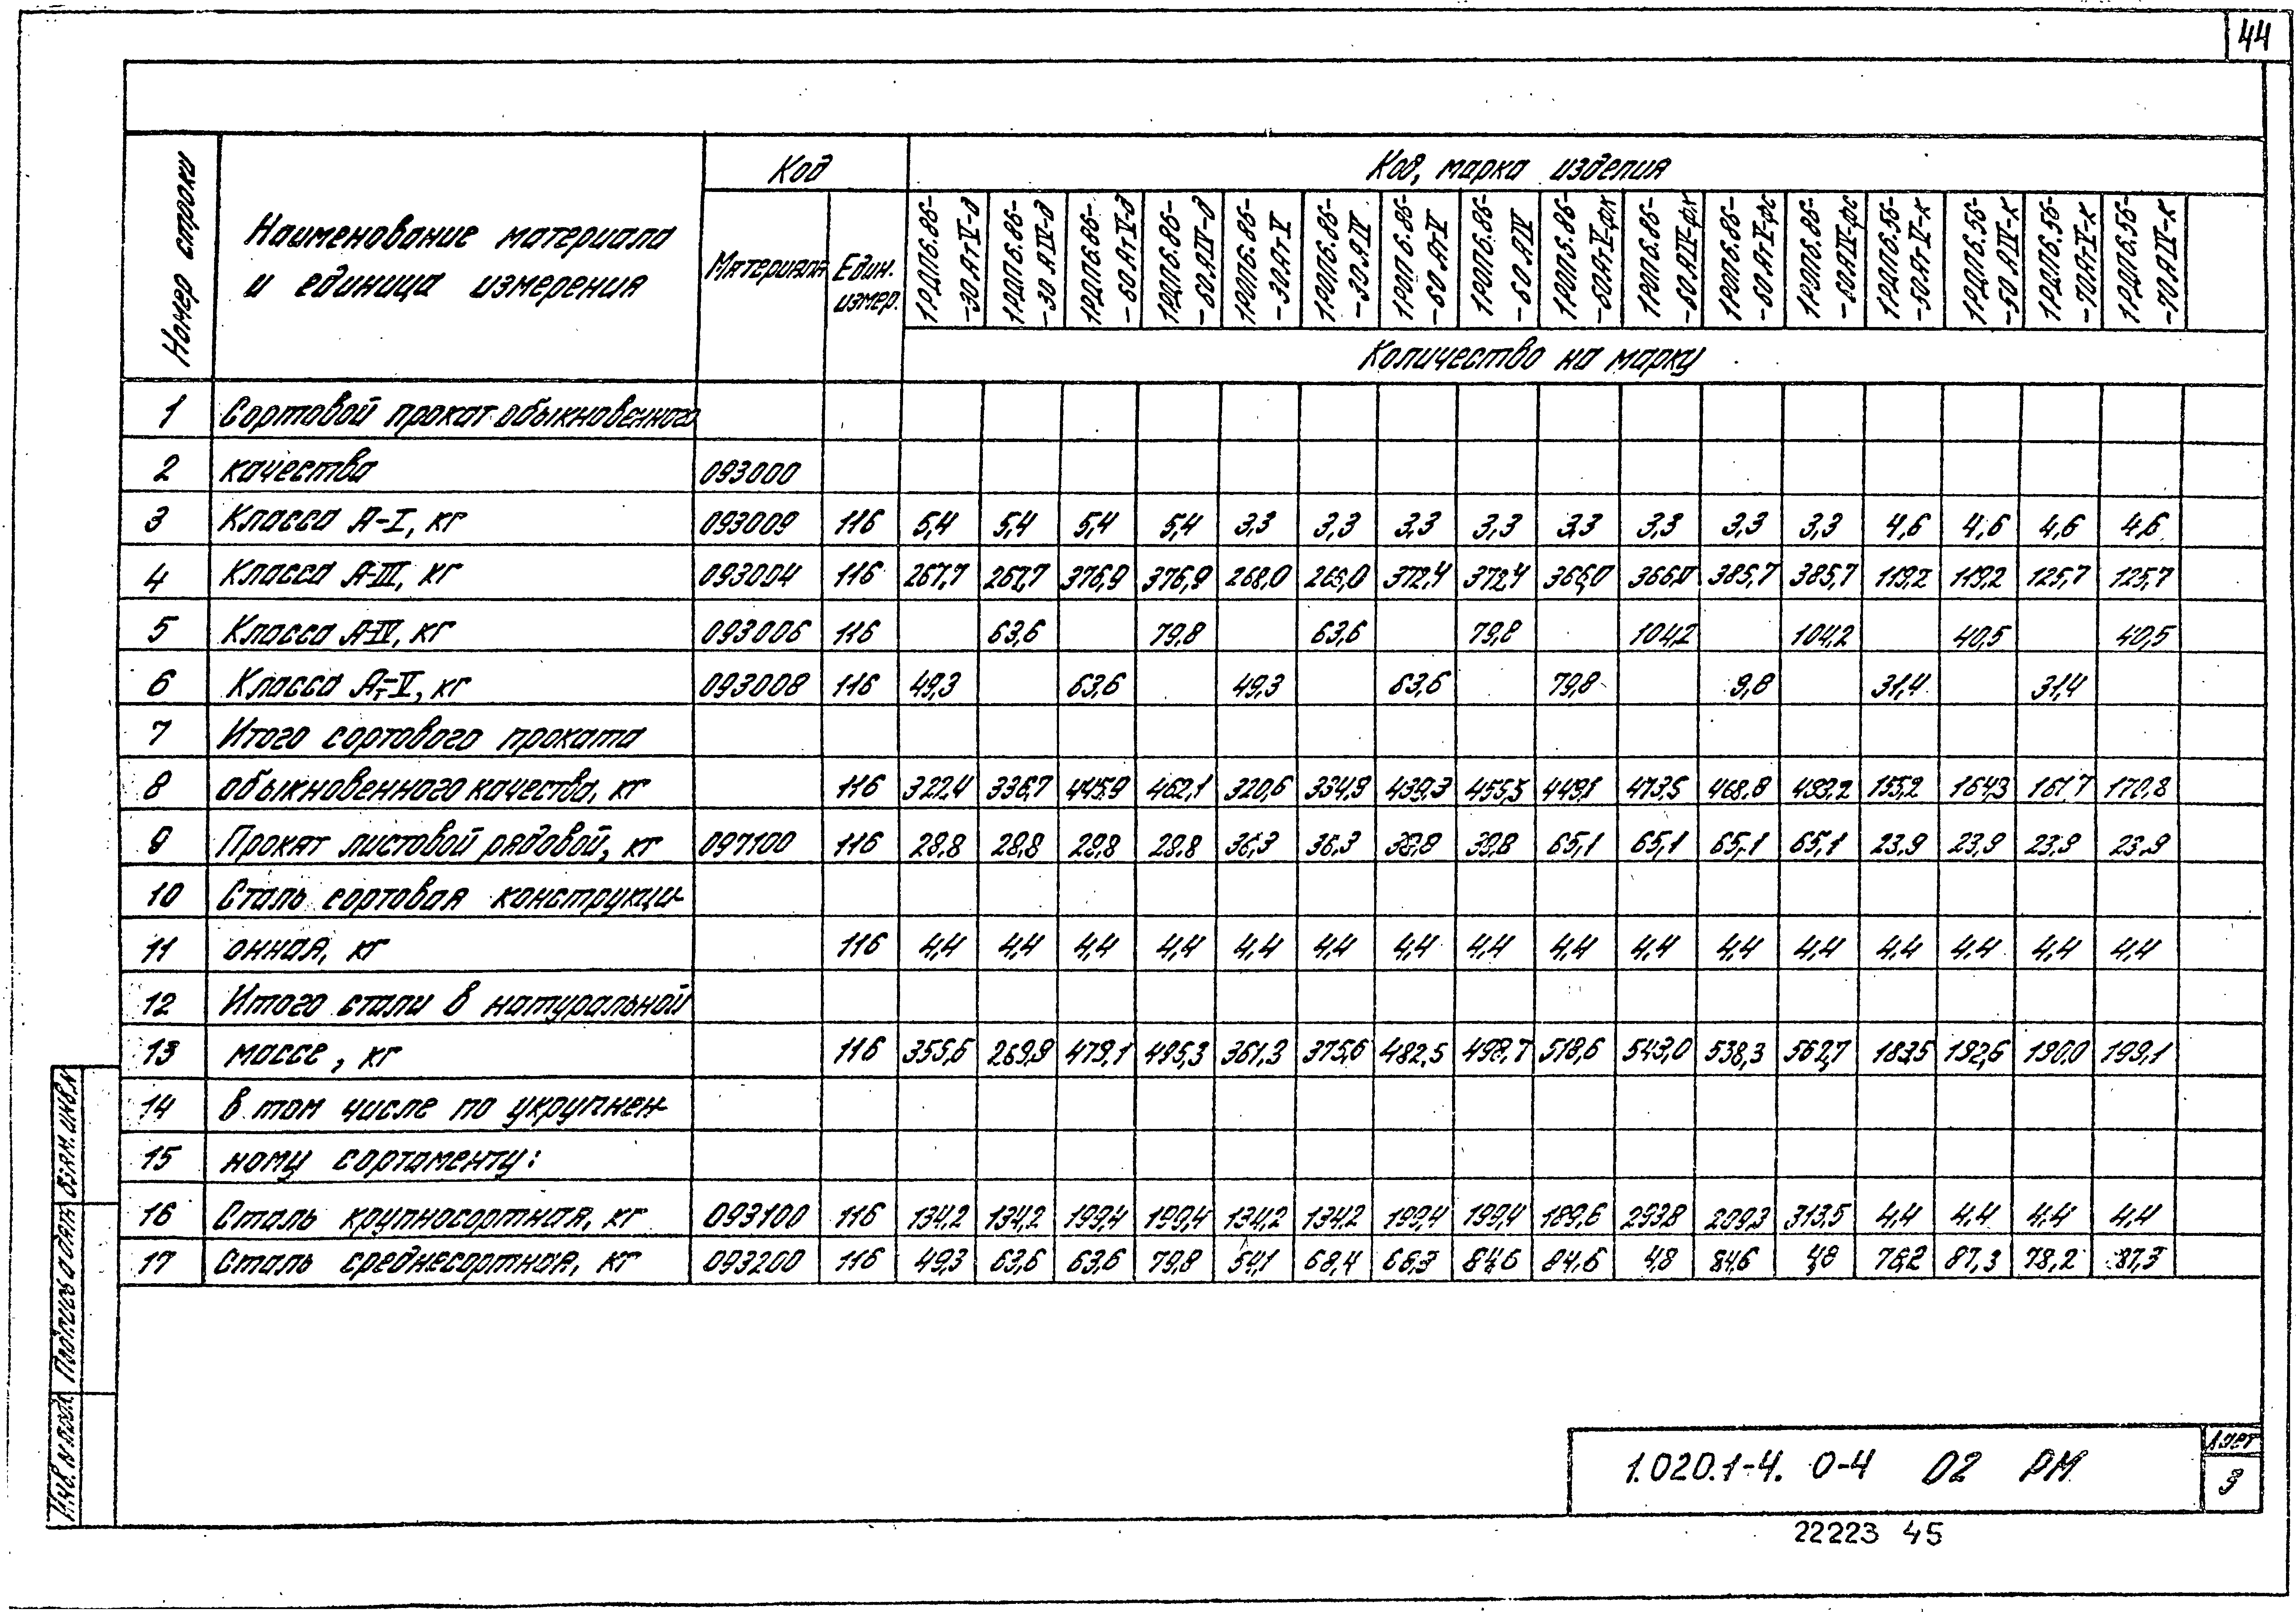 44
Номер строки
Наименование материала
и единица измерения
Код
Материала
Един.
измер.
Код, марка изделия
1РДП6.86-
-30АтV-д
1РДП6.86-
-30АIV-д
1РДП6.86-
-60АтV-д
1РДП6.86-
-60АIV-д
1РОП6.86-
-30АтV
1РОП6.86-
-30АIV
1РОП6.86-
-60АтV
1РОП6.86-
-60АIV
1РОП5.86-
-60АтV-фк
1РОП6.86-
-60АIV-фк
1РОП6.86-
-60АтV-фс
1РОП6.86-
-60АIV-фс
1РДП6.56-
-50Ат-V-к
1РДП6.56-
-50АIV-к
1РДП6.56-
-70Ат-V-к
1РДП6.56-
-70АIV-к
Количество на марку
1 Сортовой прокат обыкновенного
2 качества 093000
3 Класса А-I, кг 093009 116 5,4 5,4 5,4 5,4 3,3 3,3 3,3 3,3 3,3 3,3 3,3 3,3 4,6 4,6 4,6 4,6
4 Класса А-III, кг 093004 116 267,7 267,7 376,9 376,9 268,0 268,0 372,4 372,4 366,0 366,0 385,7 385,7 119,2 119,2 125,7 125,7
5 Класса А-IV, кг 093006 116 63,6 79,8 63,6 79,8 104,2 104,2 40,5 40,5
6 Класса Ат-V, кг 093008 116 49,3 63,6 49,3 63,6 79,8 9,8 31,4 31,4
7 Итого сортового проката
8 обыкновенного качества, кг 116 322,4 336,7 445,9 462,1 320,6 334,9 439,3 455,5 449,1 473,5 468,8 493,2 155,2 164,3 161,7 170,8
9 Прокат листовой рядовой, кг 097100 116 28,8 28,8 28,8 28,8 36,3 36,3 38,8 38,8 65,1 65,1 65,1 65,1 23,9 23,9 23,9 23,9
10 Сталь сортовая конструкци-
11 онная, кг 116 4,4 4,4 4,4 4,4 4,4 4,4 4,4 4,4 4,4 4,4 4,4 4,4 4,4 4,4 4,4 4,4
12 Итого стали в натуральной
13 массе, кг 116 355,6 269,9 479,1 495,3 361,3 375,6 482,5 498,7 518,6 543,0 538,3 562,7 183,5 192,6 190,0 199,1
14 в том числе по укрупнен-
15 ному сортаменту:
16 Сталь крупносортная, кг 093100 116 134,2 134,2 199,4 199,4 134,2 134,2 199,4 199,4 189,6 293,8 209,3 313,5 4,4 4,4 4,4 4,4
17 Сталь среднесортная, кг 093200 116 49,3 63,6 63,6 79,8 54,1 68,4 68,3 84,6 84,6 4,8 84,6 4,8 78,2 87,3 78,2 87,3
Взам.инв.N
Подпись и дата
Инв. N подл.
1.020.1-4. 0-4 02 РМ
Лист
3
22223 45